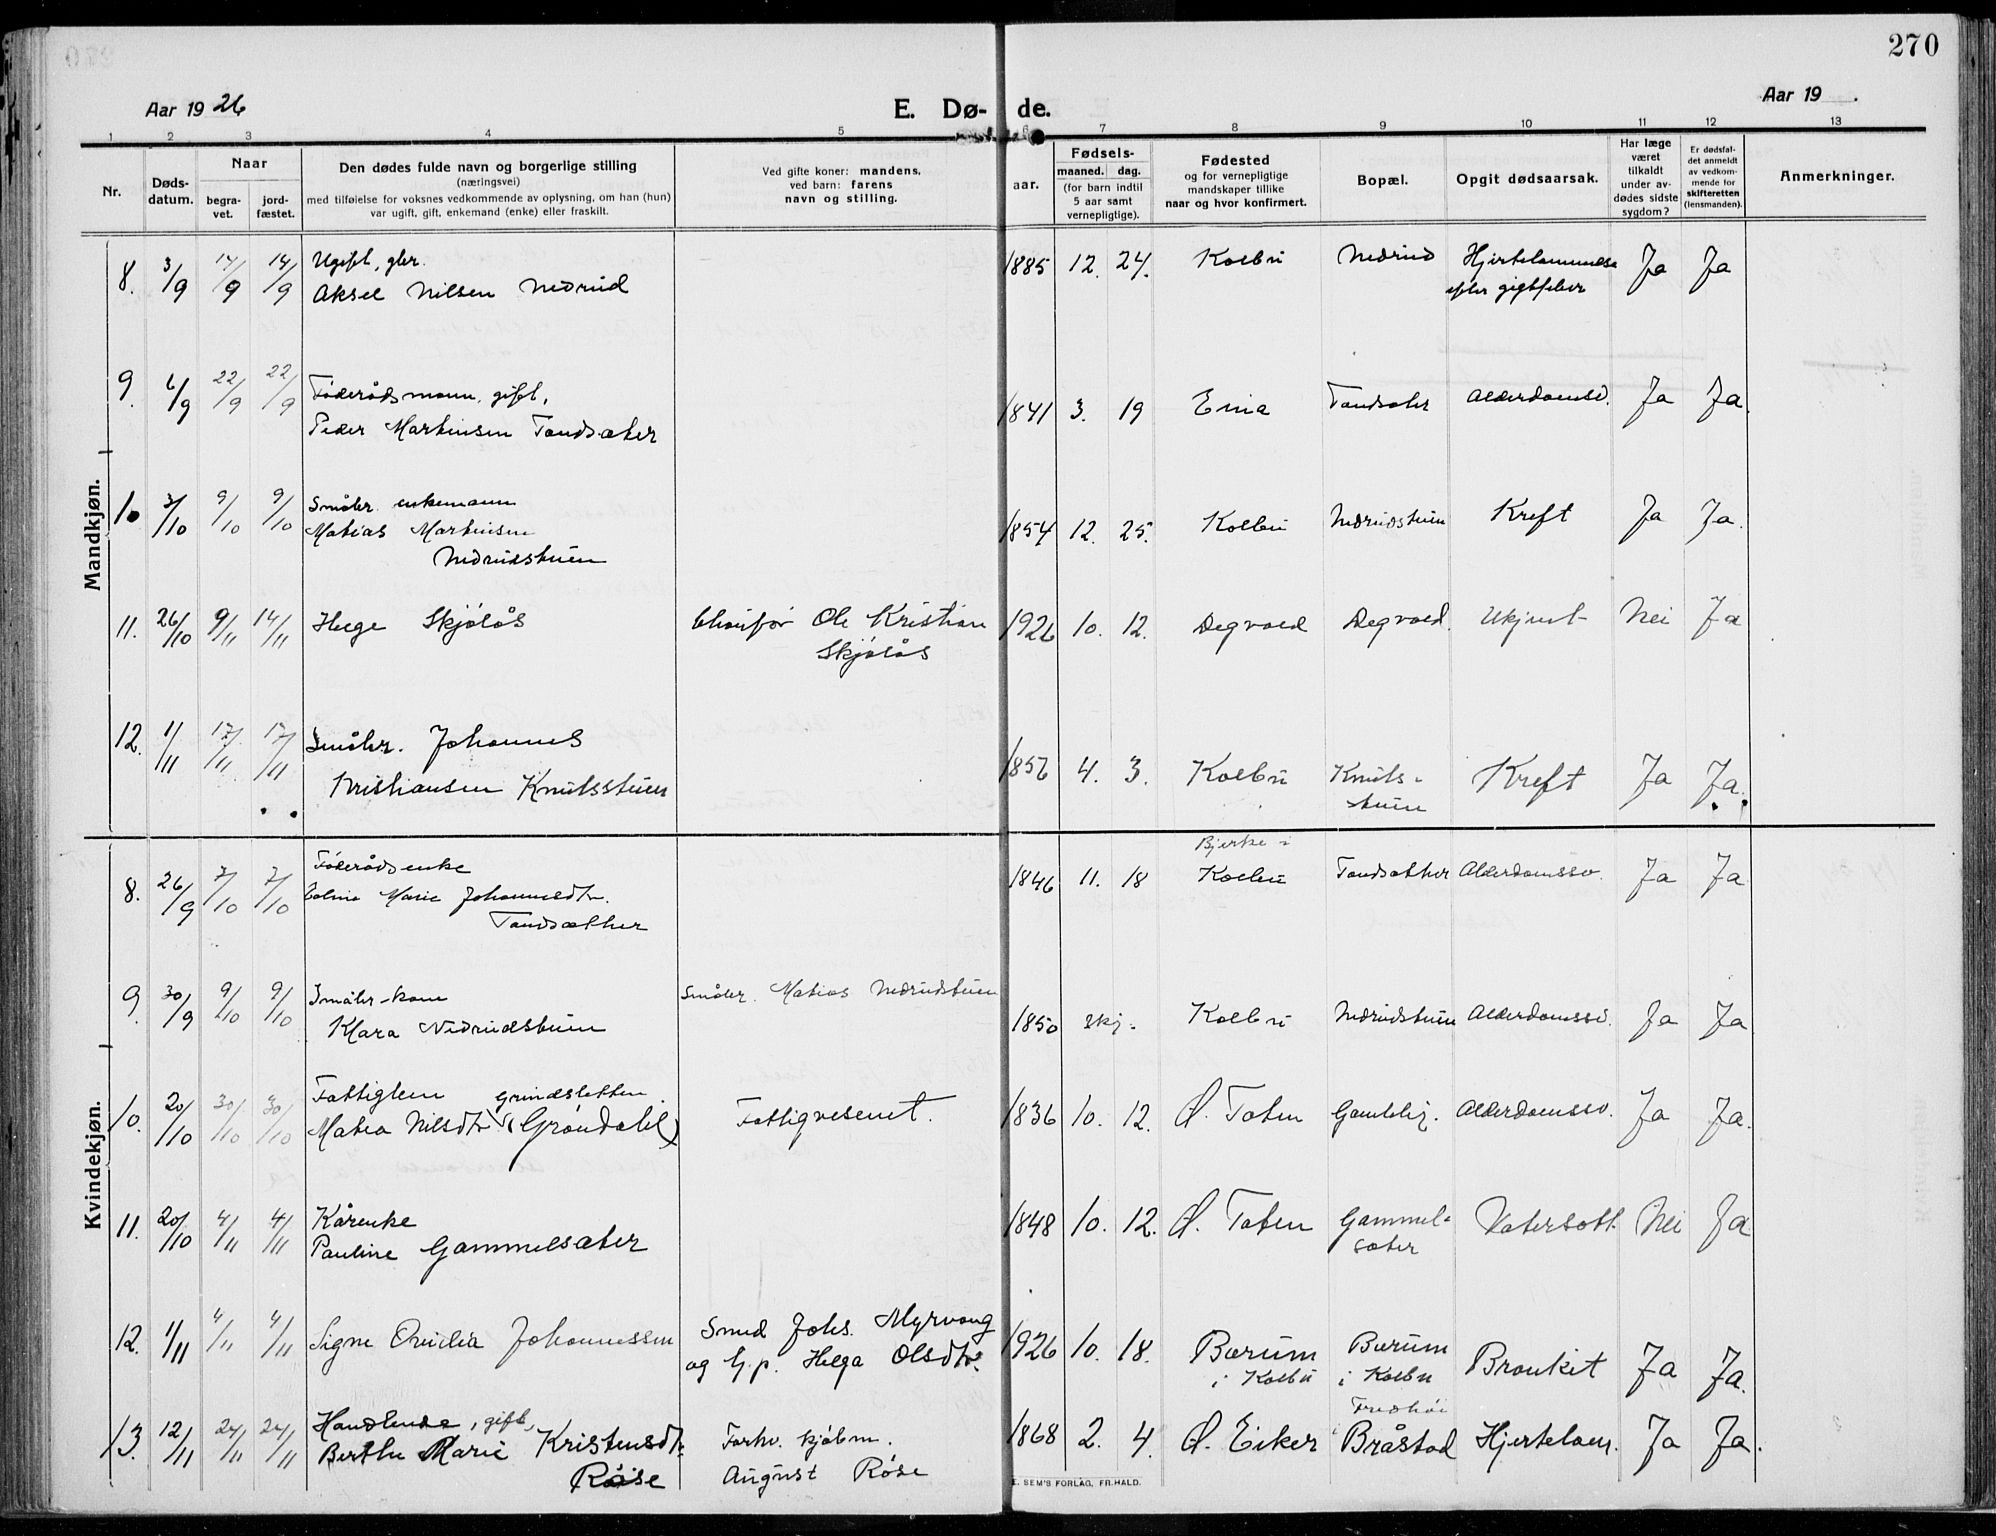 270
Aar 1926
E. Dø- de.
Aar 19 .
1 2 3 4 5 6 7 8 9 10 11 12 13
Nr.
Døds-
datum.
Naar
begra-
vet.
jord-
fæstet.
Den dødes fulde navn og borgerlige stilling
(næringsvei)
med tilføielse for voksnes vedkommende av oplysning, om han (hun)
var ugift, gift, enkemand (enke) eller fraskilt.
Ved gifte koner: mandens,
ved barn: farens
navn og stilling.
aar.
Fødsels-
maaned. dag.
(for barn indtil
5 aar samt
vernepligtige).
Fødested
og for vernepligtige
mandskaper tillike
naar og hvor konfirmert.
Bopæl.
Opgit dødsaarsak.
Har læge
været
tilkaldt
under av-
dødes sidste
sygdom?
Er dødsfal-
det anmeldt
av vedkom-
mende for
skifteretten
(lensmanden).
Anmerkninger.
Mandkjøn.
8. 3/9 14/9 14/9 Ugift, gbr. 1885 12. 24. Kolbu Nedrud Ja Ja
Aksel Nilsen Nedrud efter gigtfeber
9. 6/9 22/9 22/9 Føderådsmann, gift, 1841 3. 19 Eina Tandsæter Alderdomssv. Ja Ja
Peder Martinsen Tandsæter
10 3/10 9/10 9/10 Småbr. enkemann 1854 12. 25. Kolbu Nedrudstuen Kreft Ja Ja.
Matias Martinsen
Nedrudstuen
11. 26/10 9/11 14/11 Helge Skjølås Ole Kristian 1926 10. 12. Degvold Degvold. Ukjent Nei Ja
Skjølås
12. 1/11 17/11 17/11 Småbr. Johannes 4. 3. Kolbu Knuts- Kreft Ja Ja.
Kristiansen Knutsstuen stuen
Kvindekjøn.
8. 26/9 7/10 7/10 Føderådsenke 1846 11. 18 Bjerke i Kolbu Tandsæther Alderdomssv. Ja Ja
Marie Johannesdtr.
Tandsæther
9. 30/9 9/10 9/10 Småbr-kone Småbr. Matias Nedrudstuen 1850 skj. Kolbu Nedrudstuen Alderdomssv. Ja Ja
Klara Nedrudstuen
10. 20/10 30/10 30/10 Fattiglem Grindsletten Fattigvesenet. 1836 10. 12. Ø. Toten Gamlehj. Alderdomssv. Ja Ja.
Matea Nilsdtr (Grøndahl)
11. 20/10 4/11 4/11 Kårenke 1848 10. 12. Ø. Toten Gammel- Vatersott. Nei Ja
Pauline Gammelsæter sæter
12. 1/11 4/11 4/11 Signe Johannessen Smed Johs. Myrvang 1926 10. 18. Bærum Bærum Bronkit Ja Ja.
og G.p. Helga Olsdtr. i Kolbu i Kolbu
13. 12/11 24/11 24/11 Handlende, gift, Forhv. kjøbm. 1868 2. 4. Ø. Eiker Fredhøi Bråstad Hjertelam. Ja Ja.
Berthe Marie Kristensdtr. August Røise
Røise
E. SEM'S FORLAG, FR.HALD.